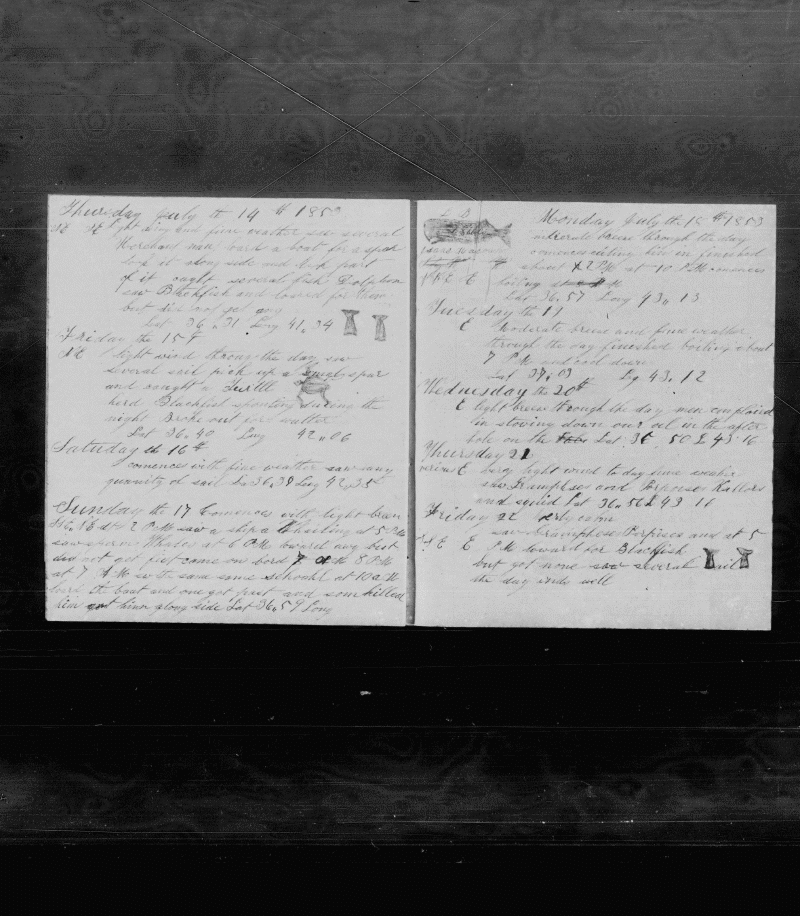 Thursday July the 14 th 1853
N E light wind and fine weather saw several
Merchant men bord a boat for a spar
took it along side and took part
of it caught several fish Dolphin
saw Blackfish and lowered for them
but did not get any
Lat 36,,31 Long 41,,34
Friday the 15th
N E light wind through the day saw
several sail pick up a spar
and caught a Turttle
herd Blackfish spouting during the
night Broke out for water
Lat 36,,40 Long 42,,06
Saturday the 16th
comences with fine weather saw any
quantity of sail La 36,,39 Long 42,,35
Sunday the 17 Comences with light breeze
at 2 P M saw a ship a Whaileing at 5 P M
saw sperm Whales at 6 P M lowerd any but
did not get fast came on bord 8 P M
at 7 A M saw the same school at 10 A M
lowrd the boat and one got fast and soon killed
him got him along side Lat 36,,59 Long
Monday July the 18 th 1853
moderate breese through the day
comences cuting him in fineshed
about 2 P M at 10 P M comences
boiling
Lat 36,,57 Long 43,,13
Tuesday the 19
E Moderate breese and fine weather
through the day fineshed boiling about
7 P M and cool down
Lat 37,,03 Lg 43,,12
Wednesday the 20th
E light breese through the day men employed
in stoving down our oil in the after
hole on the Lat 36,,50 L 43 16
Thursday 21
E very light wind to day fine weather
saw Grampuses and Porpoises
and Lat 36,,56 L 43 16
Friday 22 calm
saw Gramphose Porpises and at 5
N E E P M lowerd for Blackfish
but got none saw several sail
the day ends well